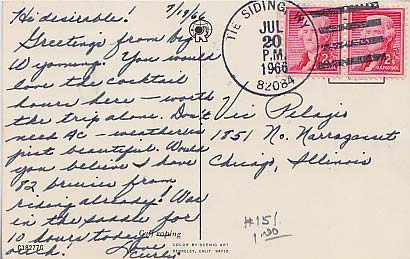 7/19/66
Hi desirable!
Greetings from big
Wyoming. You would
love the cocktail
hours here – worth
the trip alone. Don't
need AC – weather is
just beautiful. Would
you believe I have
82 bruises from
riding already! Was
in the saddle for
12 hours today
ouch! Love
Curly
Calf roping
C18277C
COLOR BY SCENIC ART
BERKELEY, CALIF. 94710
TIE SIDING, WY.
JUL
20
P.M.
1966
82084
2¢
2¢
Vic Pelagio
1851 No. Narragansett
Chicago, Illinois
#151
1.00